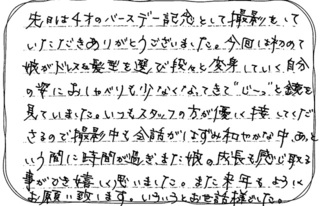 先日は4才のバースデー記念として撮影をして
いただきありがとうございました。今回は初めて
娘がドレスや髪型を選び段々と変身していく自分
の姿におしゃべりも少なくなってきて"じーっ"と鏡を
見ていました。いつもスタッフの方が優しく接してくだ
さるので撮影中も会話がはずみ和やかな中、あっと
いう間に時間が過ぎまた娘の成長を感じ取る
事ができ嬉しく思いました。また来年もよろしく
お願い致します。いろいろとお世話様でした。